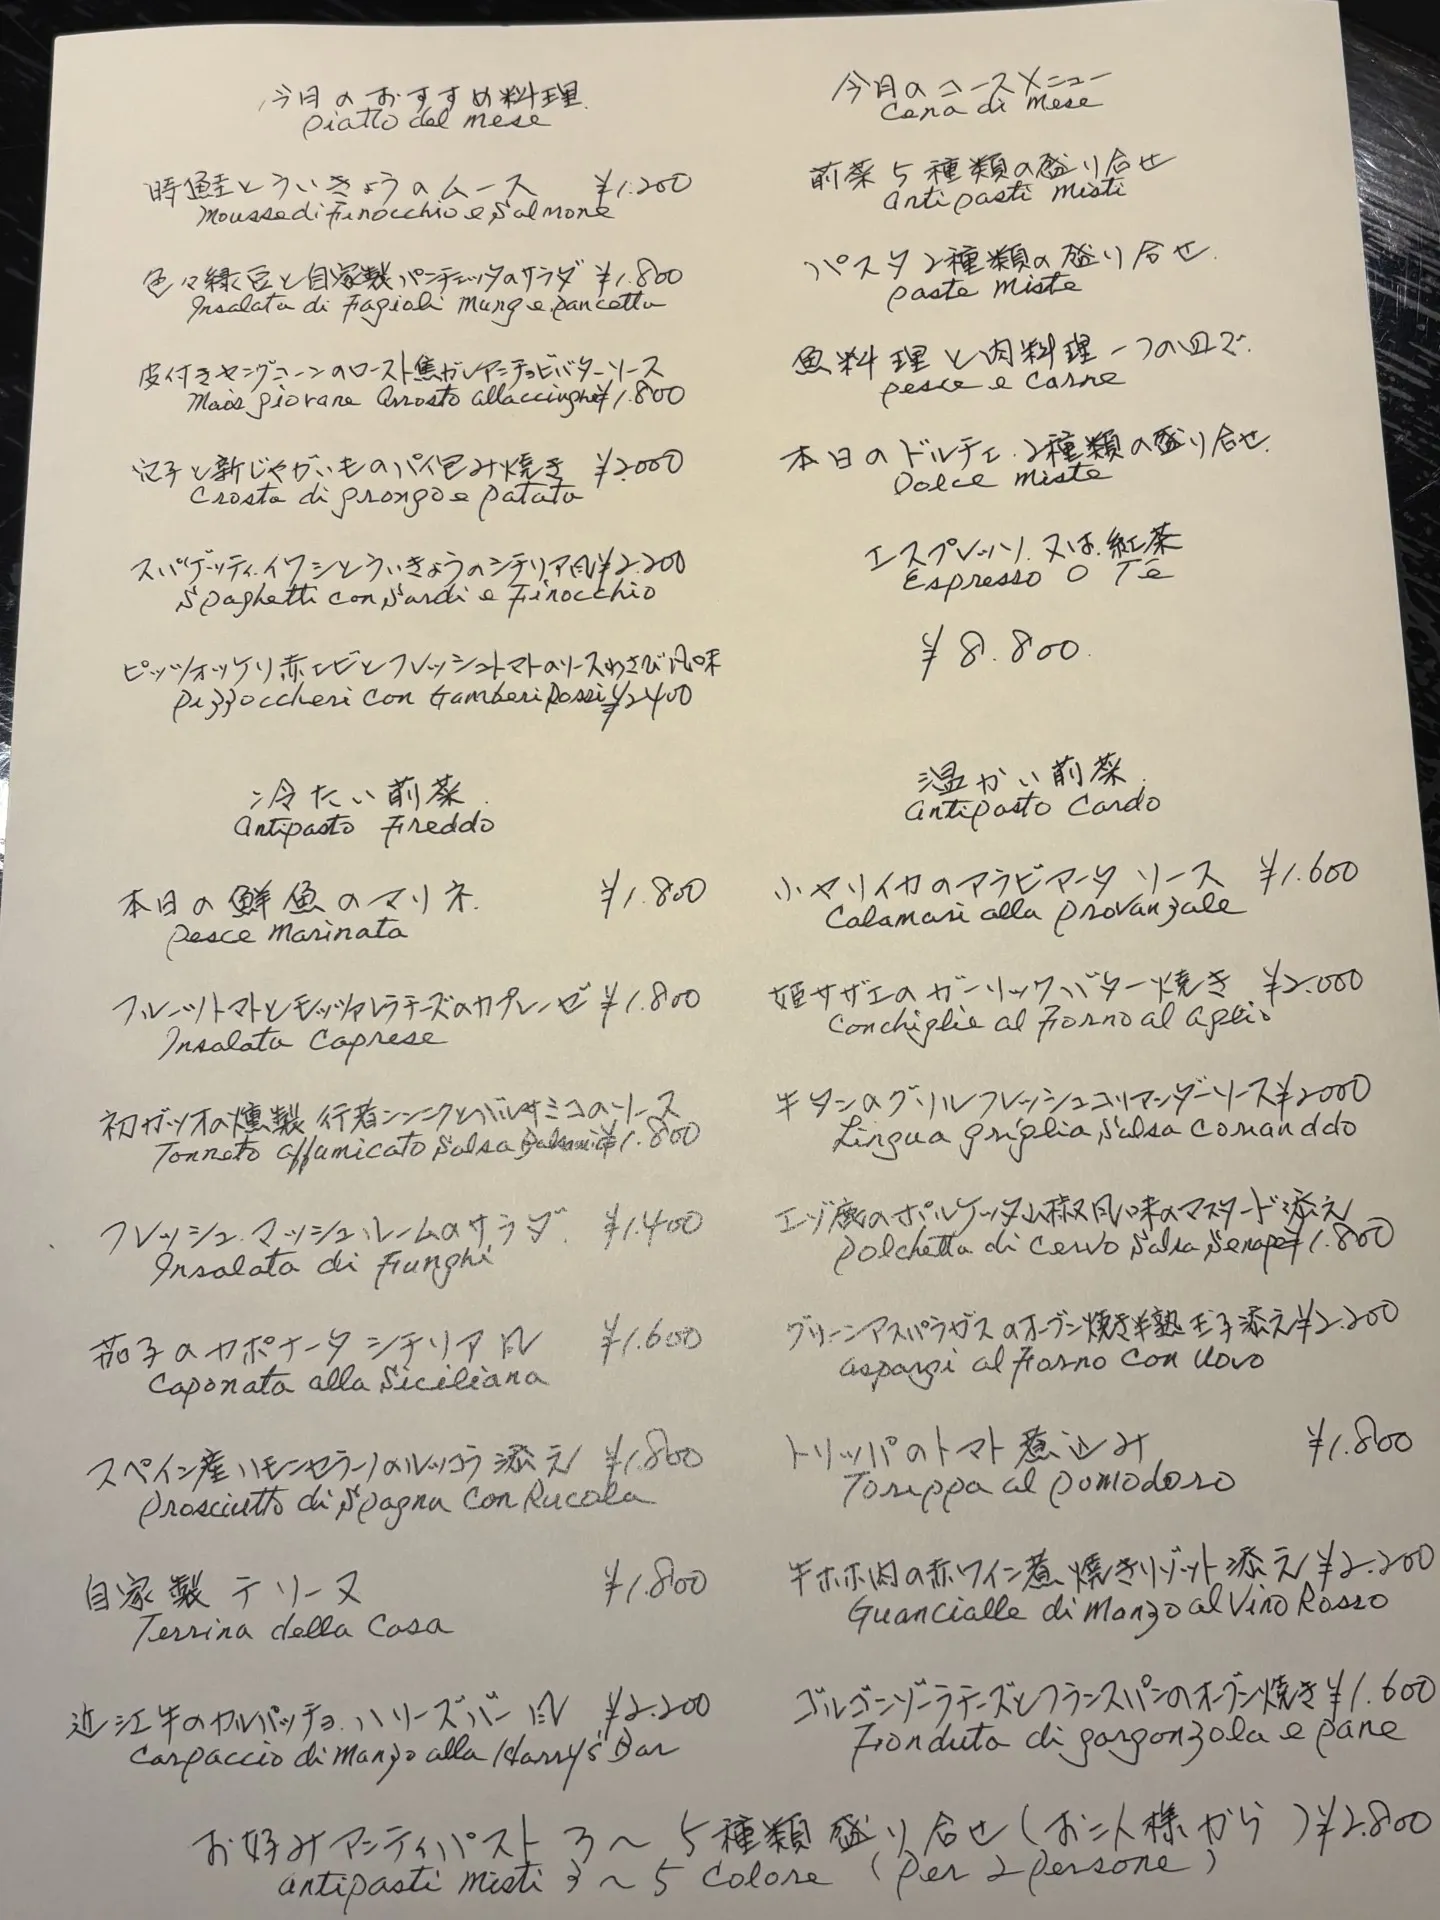 今月のおすすめ料理
Piatto del mese
時鮭とういきょうのムース ¥1.200
Mousse di Finocchio e Salmone
色々緑豆と自家製パンチェッタのサラダ ¥1.800
Insalata di Fagioli Mung e Pancetta
皮付きヤングコーンのロースト焦がしアンチョビバターソース
Mais giovane Arrosto allacciughe ¥1.800
穴子と新じゃがいものパイ包み焼き ¥2.000
Crosta di grongo e patata
スパゲッティ.イワシとういきょうのシチリア風 ¥2.200
Spaghetti con Sardi e Finocchio
ピッツオッケリ赤エビとフレッシュトマトのソースわさび風味
Pizzoccheri con Gamberi Rossi ¥2400
今月のコースメニュー
Cena di mese
前菜5種類の盛り合せ
Antipasti Misti
パスタ2種類の盛り合せ.
Paste Miste
魚料理と肉料理一つの皿で.
Pesce e Carne
本日のドルチェ.2種類の盛り合せ.
Dolce Miste
エスプレッソ.又は.紅茶
Espresso O Tē
¥8.800.
冷たい前菜.
Antipasto Freddo
本日の鮮魚のマリネ. ¥1.800
Pesce Marinata
フルーツトマトとモッツァレラチーズのカプレーゼ ¥1.800
Insalata Caprese
初ガツオの燻製 行者ニンニクとバルサミコのソース
Tonneto affumicato Salsa Balsamic ¥1.800
フレッシュ.マッシュルームのサラダ. ¥1.400
Insalata di Funghi
茄子のカポナータ シチリア風 ¥1.600
Caponata alla Siciliana
スペイン産ハモンセラーノのルッコラ添え ¥1.800
Prosciutto di Spagna con Rucola
自家製テリーヌ ¥1.800
Terrina della Casa
近江牛のカルパッチョ.ハリーズバー風 ¥2.200
Carpaccio di Manzo alla Harry's Bar
温かい前菜.
Antipasto Cardo
小ヤリイカのアラビアータ ソース ¥1.600
Calamari alla Provanzale
姫サザエのガーリックバター焼き ¥2.000
Conchiglie al Forno al Aglio
牛タンのグリルフレッシュコリアンダーソース ¥2000
Lingua griglia Salsa Comanddo
エゾ鹿のポルケッタ山椒風味のマスタード添え
Polchetta di Cervo Salsa Senape ¥1.800
グリーンアスパラガスのオーブン焼き半熟玉子添え ¥2.200
Aspargi al Forno con Uovo
トリッパのトマト煮込み ¥1.800
Torippa al Pomodoro
牛ホホ肉の赤ワイン煮 焼きリゾット添え ¥2.200
Guancialle di Manzo al Vino Rosso
ゴルゴンゾーラチーズとフランスパンのオーブン焼き ¥1.600
Fonduta di gorgonzola e pane
お好みアンティパスト 3〜5種類盛り合せ(お二人様から) ¥2.800
Antipasti Misti 3〜5 Colore (Per 2 Persone)